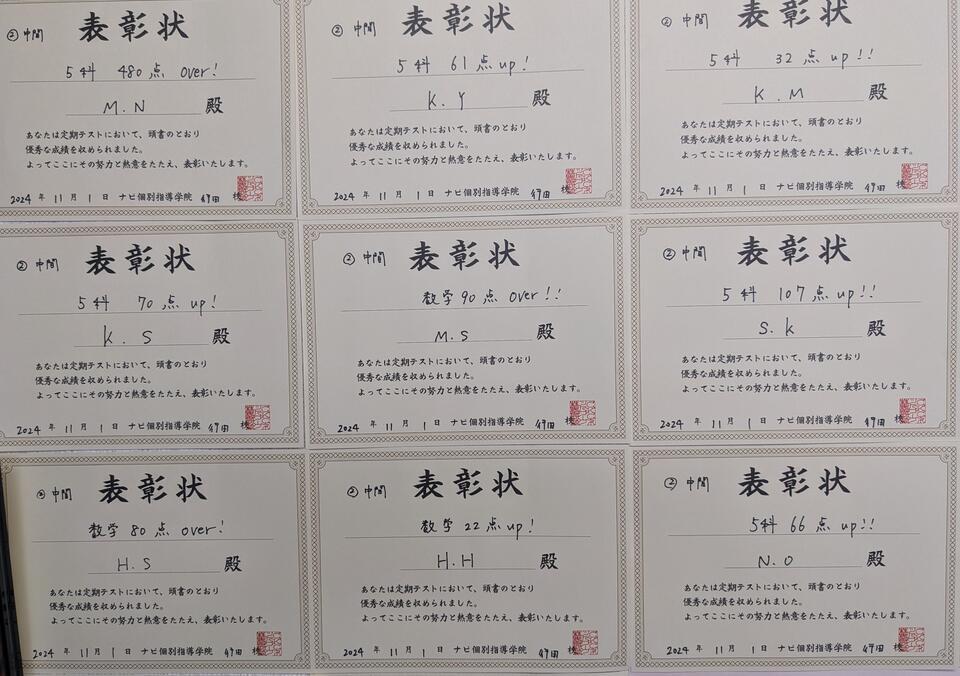 ② 中間 表彰状
5科 480点 over!
M.N 殿
あなたは定期テストにおいて、頭書のとおり
優秀な成績を収められました。
よってここにその努力と熱意をたたえ、表彰いたします。
2024 年 11 月 1 日 ナビ個別指導学院
② 中間 表彰状
5科 61点up!
K.Y 殿
あなたは定期テストにおいて、頭書のとおり
優秀な成績を収められました。
よってここにその努力と熱意をたたえ、表彰いたします。
2024 年 11 月 1 日 ナビ個別指導学院
② 中間 表彰状
5科 32点up!!
K.M 殿
あなたは定期テストにおいて、頭書のとおり
優秀な成績を収められました。
よってここにその努力と熱意をたたえ、表彰いたします。
2024 年 11 月 1 日 ナビ個別指導学院
② 中間 表彰状
5科 70点up!
K.S 殿
あなたは定期テストにおいて、頭書のとおり
優秀な成績を収められました。
よってここにその努力と熱意をたたえ、表彰いたします。
2024 年 11 月 1 日 ナビ個別指導学院
② 中間 表彰状
数学90点over!!
M.S 殿
あなたは定期テストにおいて、頭書のとおり
優秀な成績を収められました。
よってここにその努力と熱意をたたえ、表彰いたします。
2024 年 11 月 1 日 ナビ個別指導学院
② 中間 表彰状
5科 107点up!!
S.K 殿
あなたは定期テストにおいて、頭書のとおり
優秀な成績を収められました。
よってここにその努力と熱意をたたえ、表彰いたします。
2024 年 11 月 1 日 ナビ個別指導学院
② 中間 表彰状
数学80点over!
H.S 殿
あなたは定期テストにおいて、頭書のとおり
優秀な成績を収められました。
よってここにその努力と熱意をたたえ、表彰いたします。
2024 年 11 月 1 日 ナビ個別指導学院
② 中間 表彰状
数学22点up!
H.H 殿
あなたは定期テストにおいて、頭書のとおり
優秀な成績を収められました。
よってここにその努力と熱意をたたえ、表彰いたします。
2024 年 11 月 1 日 ナビ個別指導学院
② 中間 表彰状
5科 66点up!!
N.O 殿
あなたは定期テストにおいて、頭書のとおり
優秀な成績を収められました。
よってここにその努力と熱意をたたえ、表彰いたします。
2024 年 11 月 1 日 ナビ個別指導学院